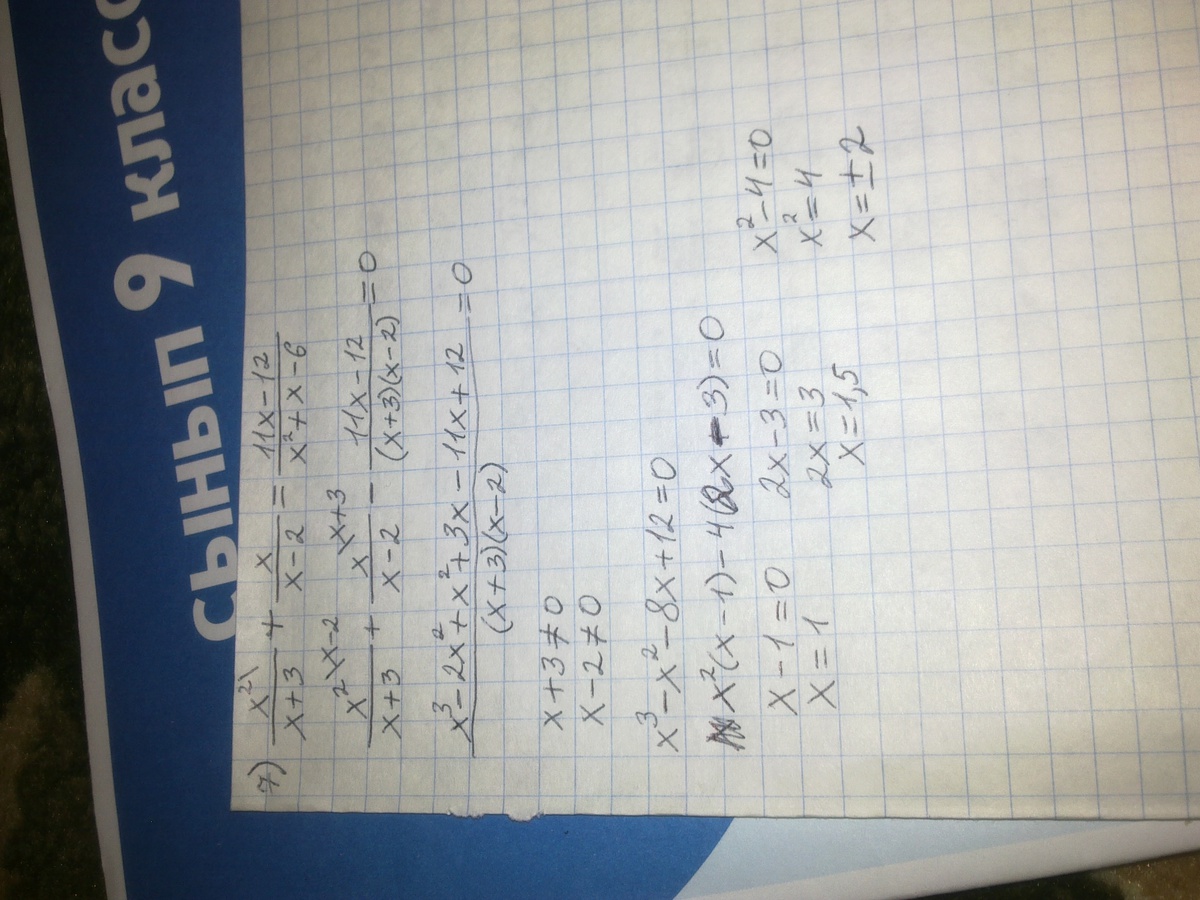 СЫНЫП 9 КЛАСС
7) x²\/(x+3) + x/(x-2) = (11x-12)/(x²+x-6)
x²\x-2/(x+3) + x\x+3/(x-2) - (11x-12)/((x+3)(x-2)) = 0
(x³-2x²+x²+3x-11x+12)/((x+3)(x-2)) = 0
x+3≠0
x-2≠0
x³-x²-8x+12=0
x²(x-1)-4(2x-3)=0
x-1=0 2x-3=0 x²-4=0
x=1 2x=3 x²=4
x=1,5 x=±2